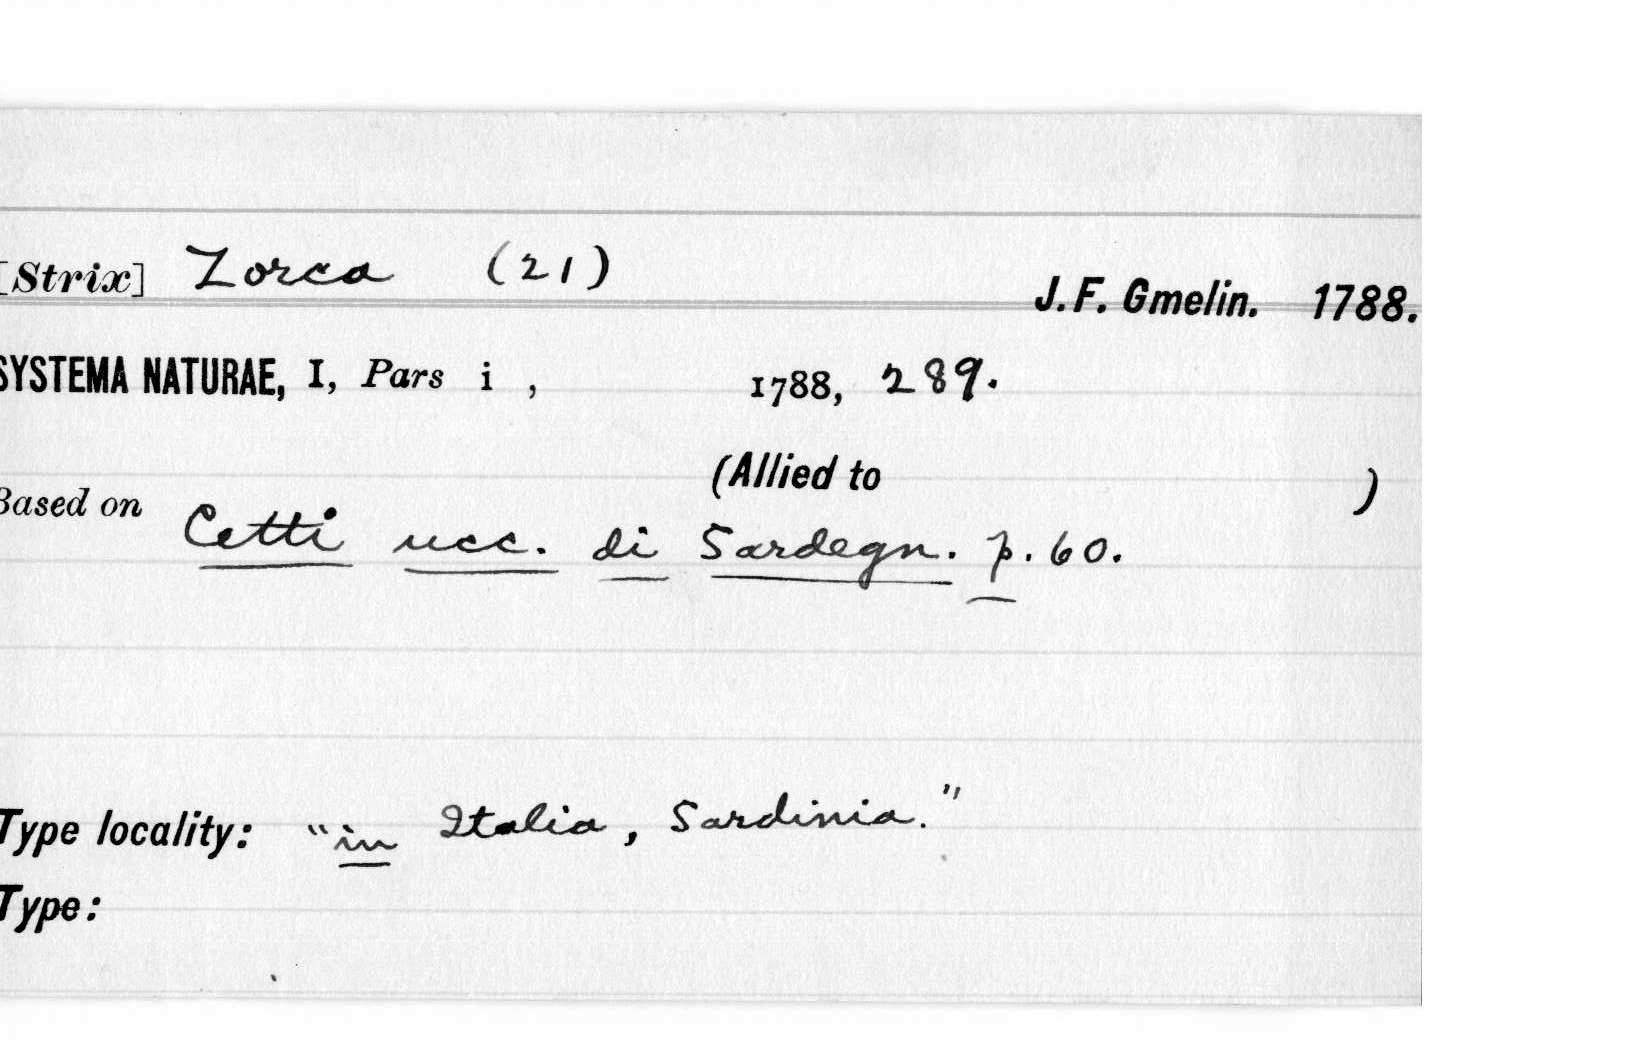 [Strix] Zorca (21)
J. F. Gmelin. 1788.
SYSTEMA NATURAE, I, Pars i , 1788, 289.
(Allied to )
Based on Cetti ucc. di Sardegn. p. 60.
Type locality: "in Italia, Sardinia."
Type: